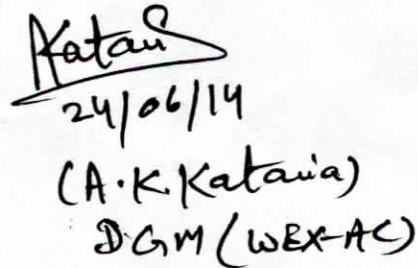 Katari
24/06/14
(A.K. Kataria)
DGM (WEX-AC)